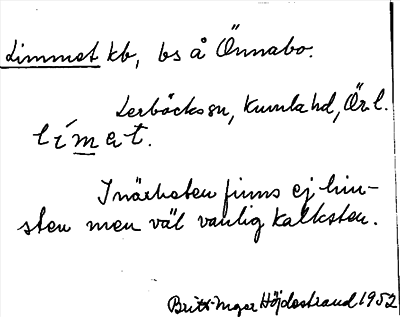 Limmet kb, bs å Önnabo.
Lerbäcks sn, Kumla hd, Ör l.
límet.
I närheten finns ej lim-
sten men väl vanlig kalksten.
Britt-Inger Höjdestrand 1952